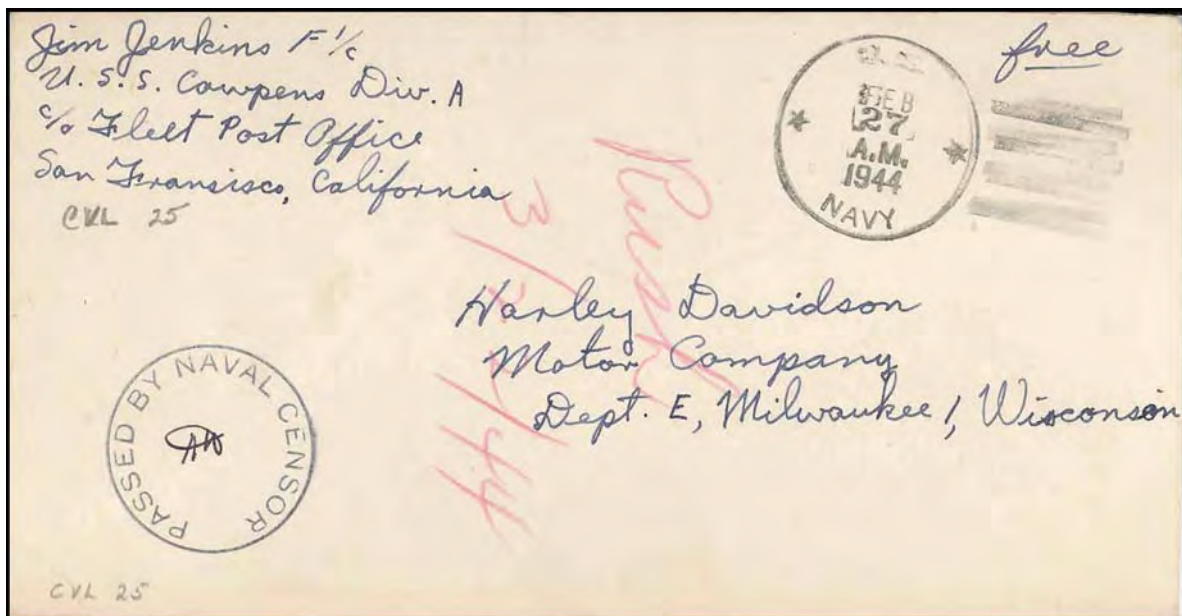 Jim Jenkins F 1/c
U.S.S. Cowpens Div. A
c/o Fleet Post Office
San Fransisco, California
CVL 25
free
FEB
27
A.M.
1944
NAVY
Harley Davidson
Motor Company
Dept. E, Milwaukee 1, Wisconsin
PASSED BY NAVAL CENSOR
CVL 25